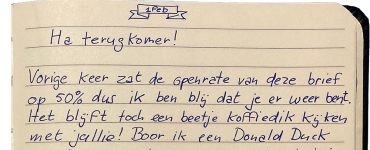 1 Feb
Ha terugkomer!
Vorige keer zat de openrate van deze brief
op 50% dus ik ben blij dat je er weer bent.
Het blijft toch een beetje koffiedik kijken
met jallie! Boor ik een Donald Duck